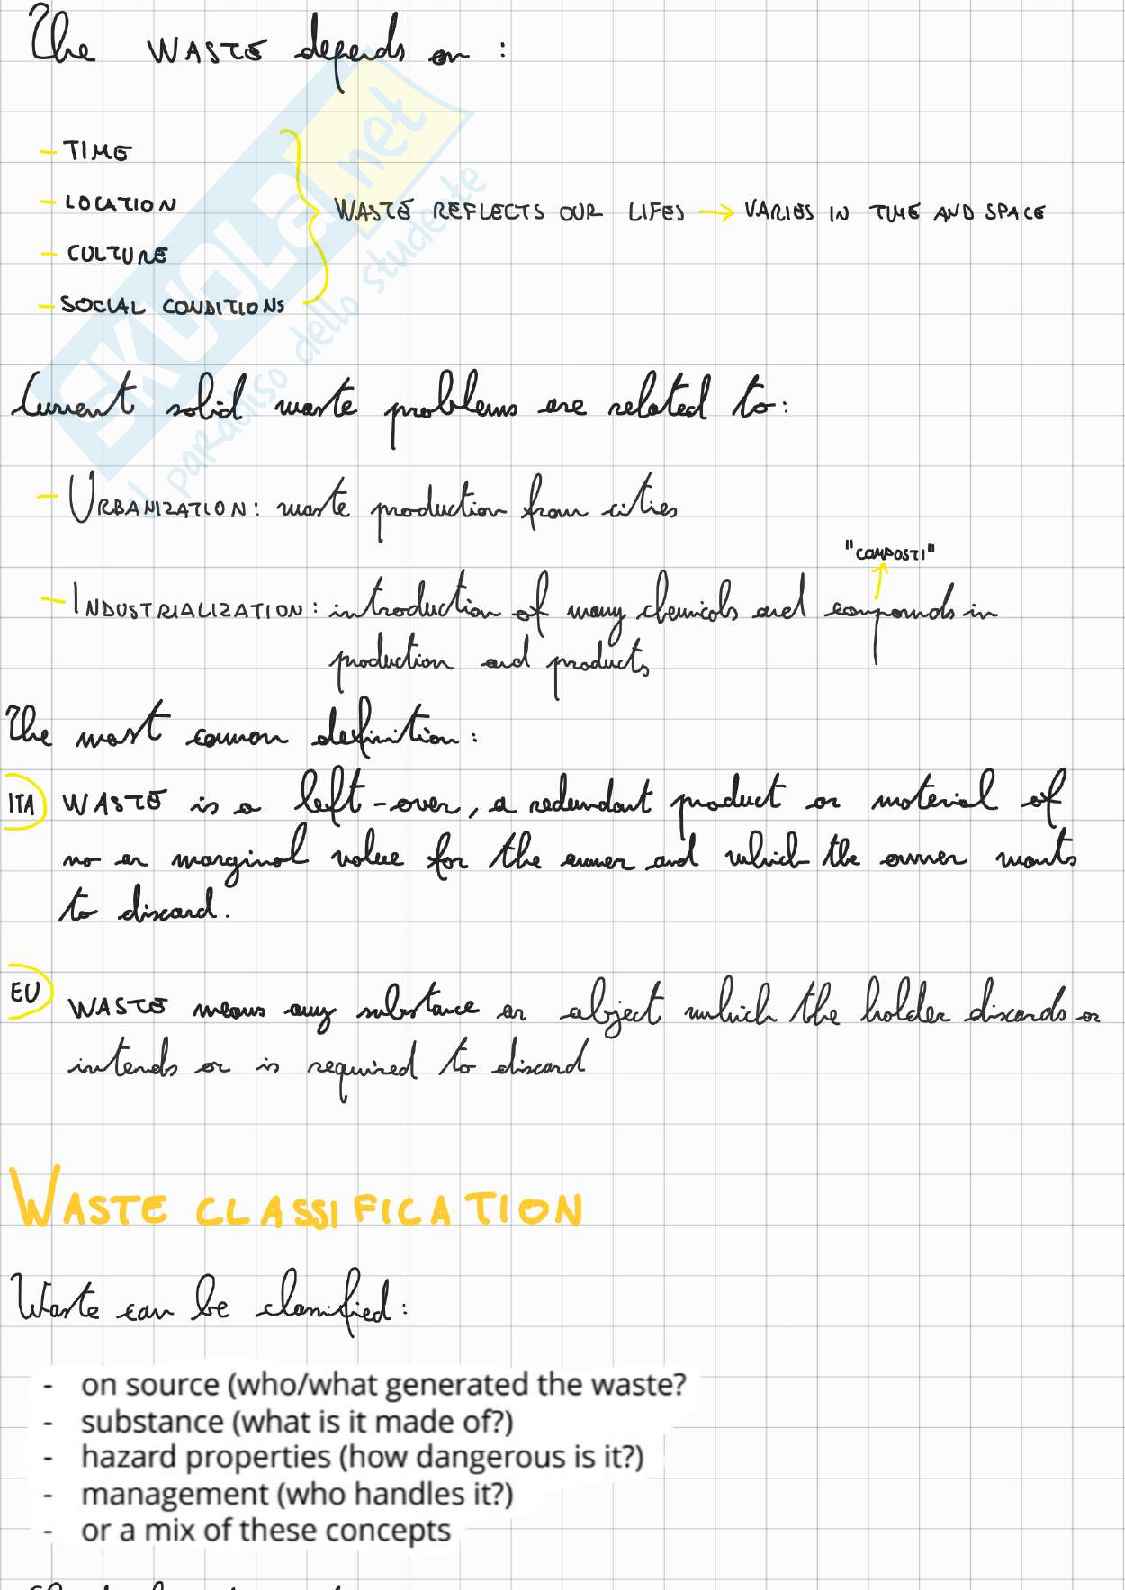 The WASTE depends on :
- TIME
- LOCATION
- CULTURE
- SOCIAL CONDITIONS
WASTE REFLECTS OUR LIFES → VARIES IN TIME AND SPACE
SKUOLA.net
il paradiso dello studente
Current solid waste problems are related to:
- URBANIZATION: waste production from cities
"COMPOSTI"
- INDUSTRIALIZATION: introduction of many chemicals and compounds in
production and products
The most common definition:
ITA WASTE is a left-over, a redundant product or material of
no or marginal value for the owner and which the owner wants
to discard.
EU WASTE means any substance or object which the holder discards or
intends or is required to discard
WASTE CLASSIFICATION
Waste can be classified:
- on source (who/what generated the waste?
- substance (what is it made of?)
- hazard properties (how dangerous is it?)
- management (who handles it?)
- or a mix of these concepts